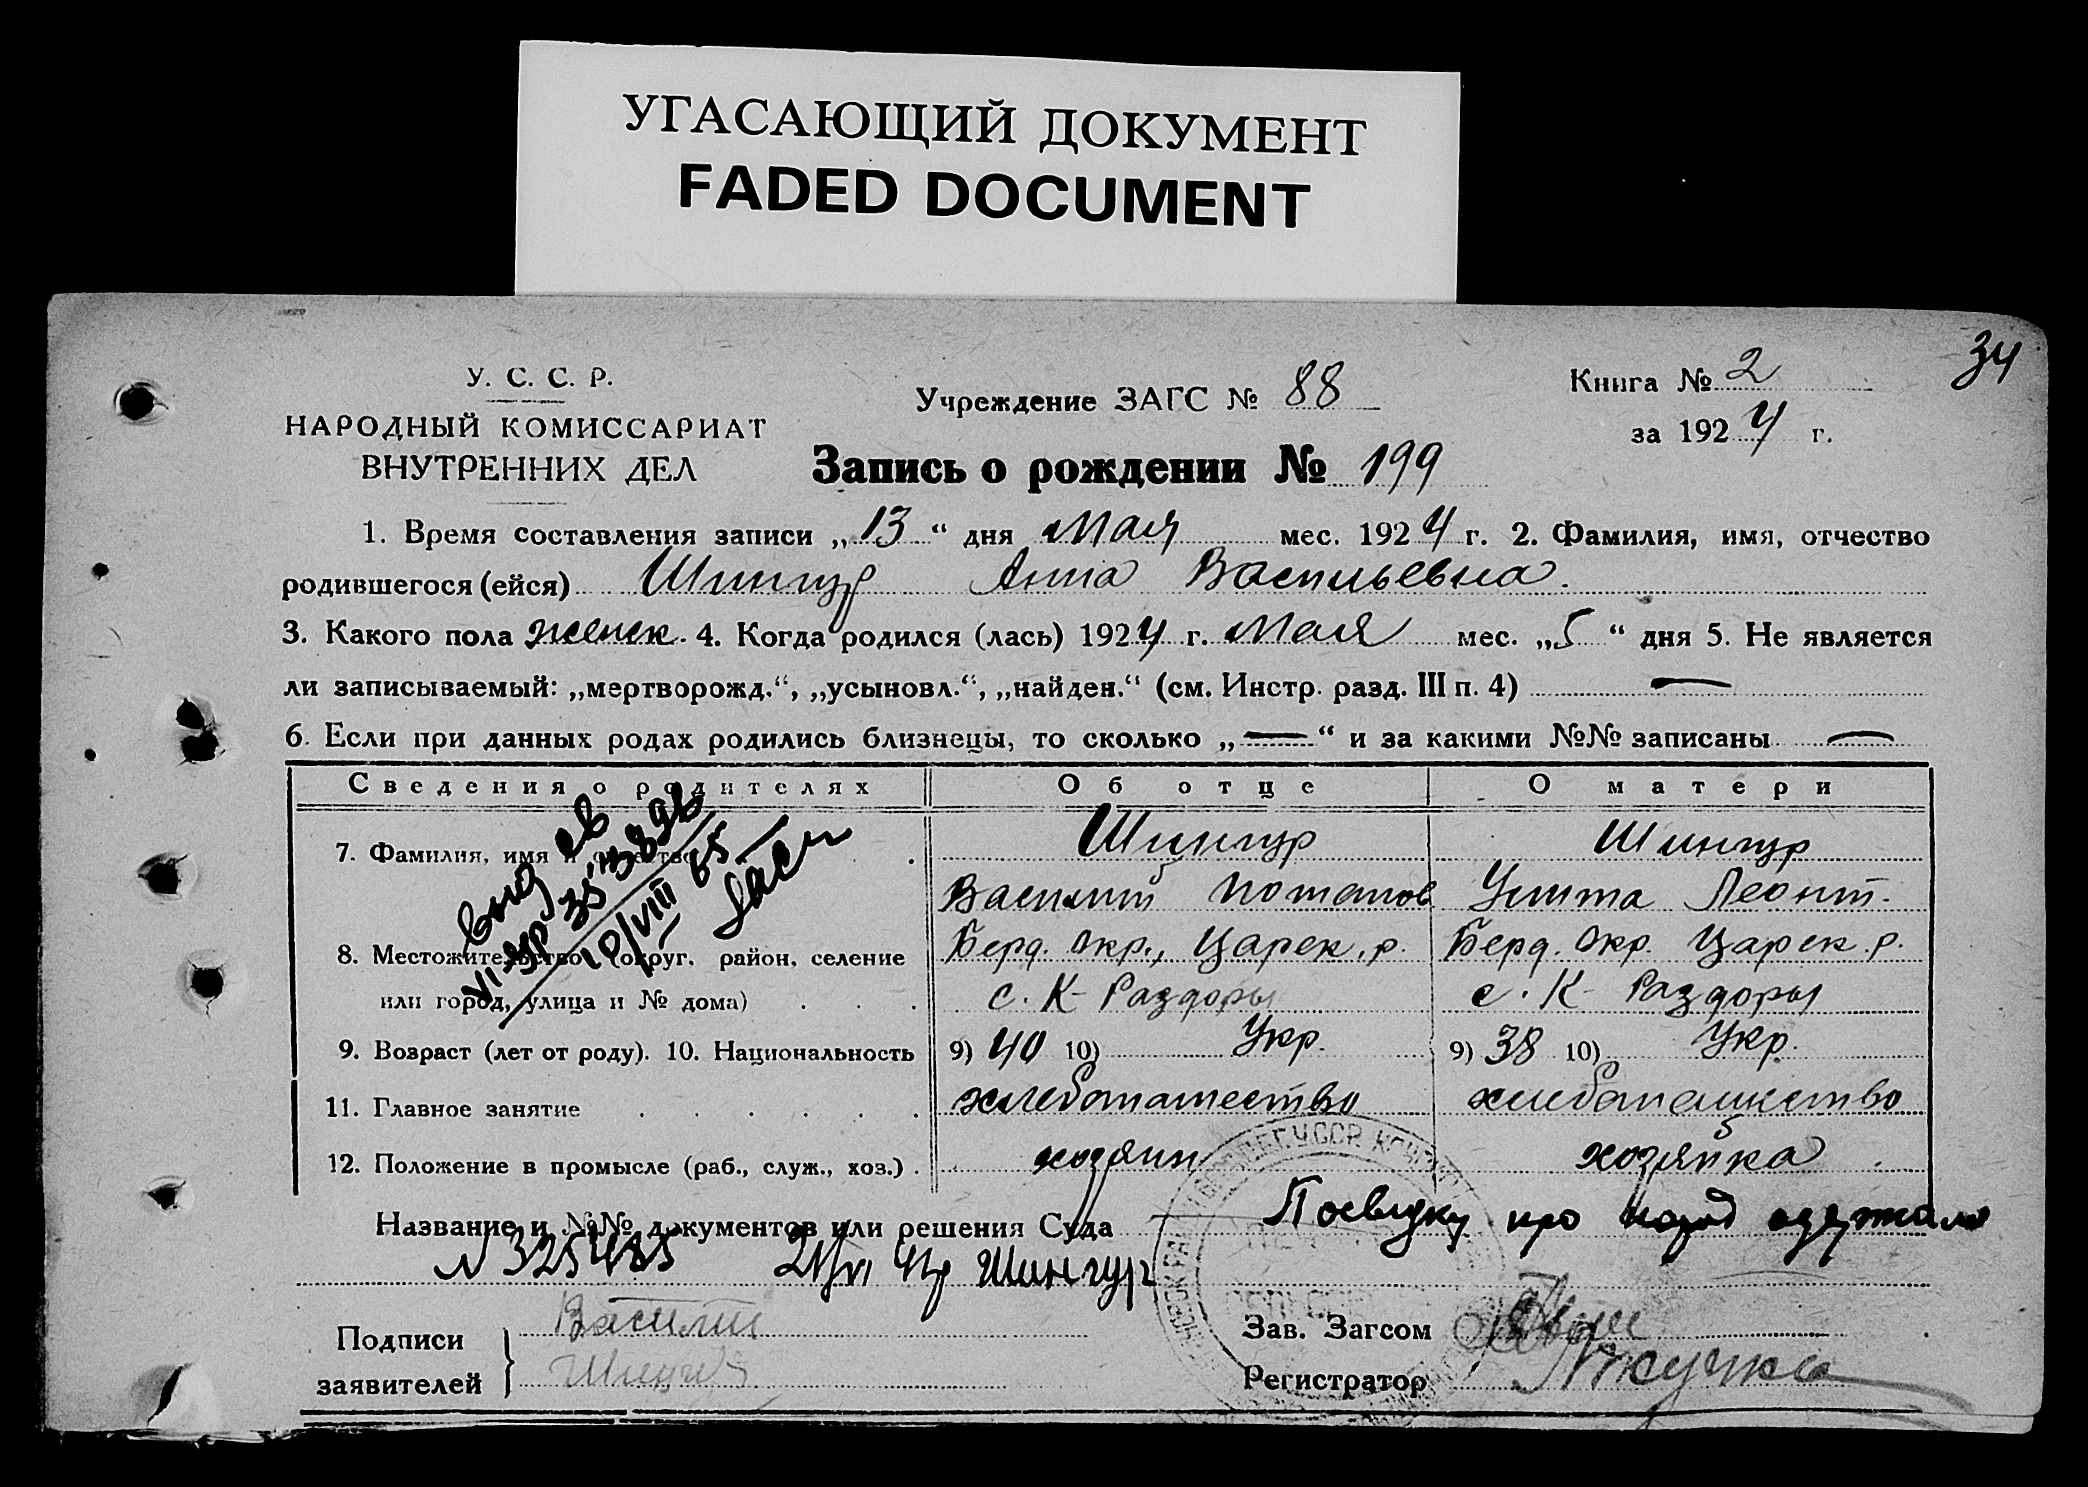 УГАСАЮЩИЙ ДОКУМЕНТ
FADED DOCUMENT
34
У. С. С. Р.
НАРОДНЫЙ КОМИССАРИАТ
ВНУТРЕННИХ ДЕЛ
Учреждение ЗАГС № 88
Книга № 2
за 1924 г.
Запись о рождении № 199
1. Время составления записи „13“ дня Мая мес. 1924 г. 2. Фамилия, имя, отчество
родившегося (ейся) Шингур Анна Васильевна.
3. Какого пола женск. 4. Когда родился (лась) 1924 г. Мая мес. „5“ дня 5. Не является
ли записываемый: „мертворожд.“, „усыновл.“, „найден.“ (см. Инстр. разд. III п. 4) —
6. Если при данных родах родились близнецы, то сколько „—“ и за какими №№ записаны —
Сведения о родителях Об отце О матери
7. Фамилия, имя и отчество Шингур Шингур
Василий Потапов Улита Леонт.
8. Местожительство (округ, район, селение Берд. Окр., Царек. р. Берд. Окр. Царек. р.
или город, улица и № дома) с. К-Раздоры с. К-Раздоры
9. Возраст (лет от роду). 10. Национальность 9) 40 10) Укр. 9) 38 10) Укр.
11. Главное занятие хлебопашество хлебопашество
12. Положение в промысле (раб., служ., хоз.) хозяин хозяйка
10/VIII 65
Название и №№ документов или решения Суда Посвідку про народ одержала
№ 325485 Шингур
Подписи Василий
заявителей Шингур
Зав. Загсом
Регистратор